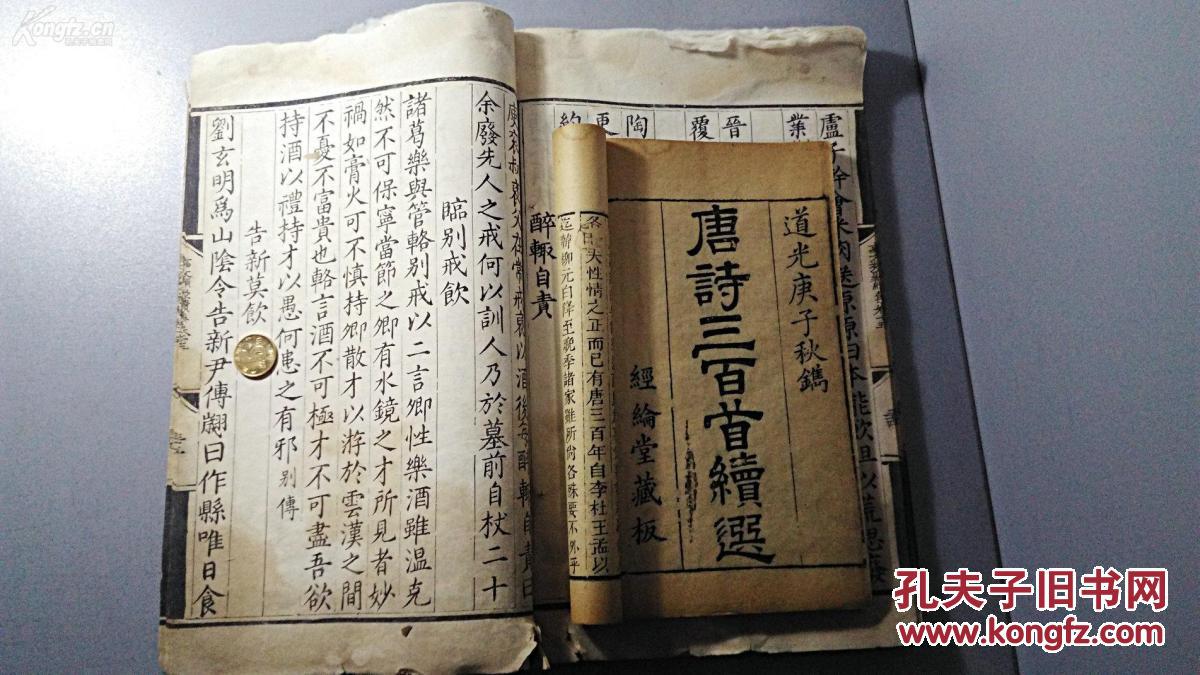 盧子幹會
業
晉
覆
陶
更
約
醉輙自責
余廢先人之戒何以訓人乃於墓前自杖二十
臨别戒飲
諸葛樂與管輅别戒以二言卿性樂酒雖温克
然不可保寧當節之卿有水鏡之才所見者妙
禍如膏火可不慎持卿散才以游於雲漢之間
不憂不富貴也輅言酒不可極才不可盡吾欲
持酒以禮持才以愚何患之有邪 别傳
告新莫飲
劉玄明爲山陰令告新尹傅翽曰作縣唯日食
道光庚子秋鐫
唐詩三百首續選
經綸堂藏板
夫性情之正而已有唐三百年自李杜王孟以
迄韓柳元白降至晩季諸家雖所尚各殊要不外乎
Kongfz.cn
孔夫子旧书网
www.kongfz.com